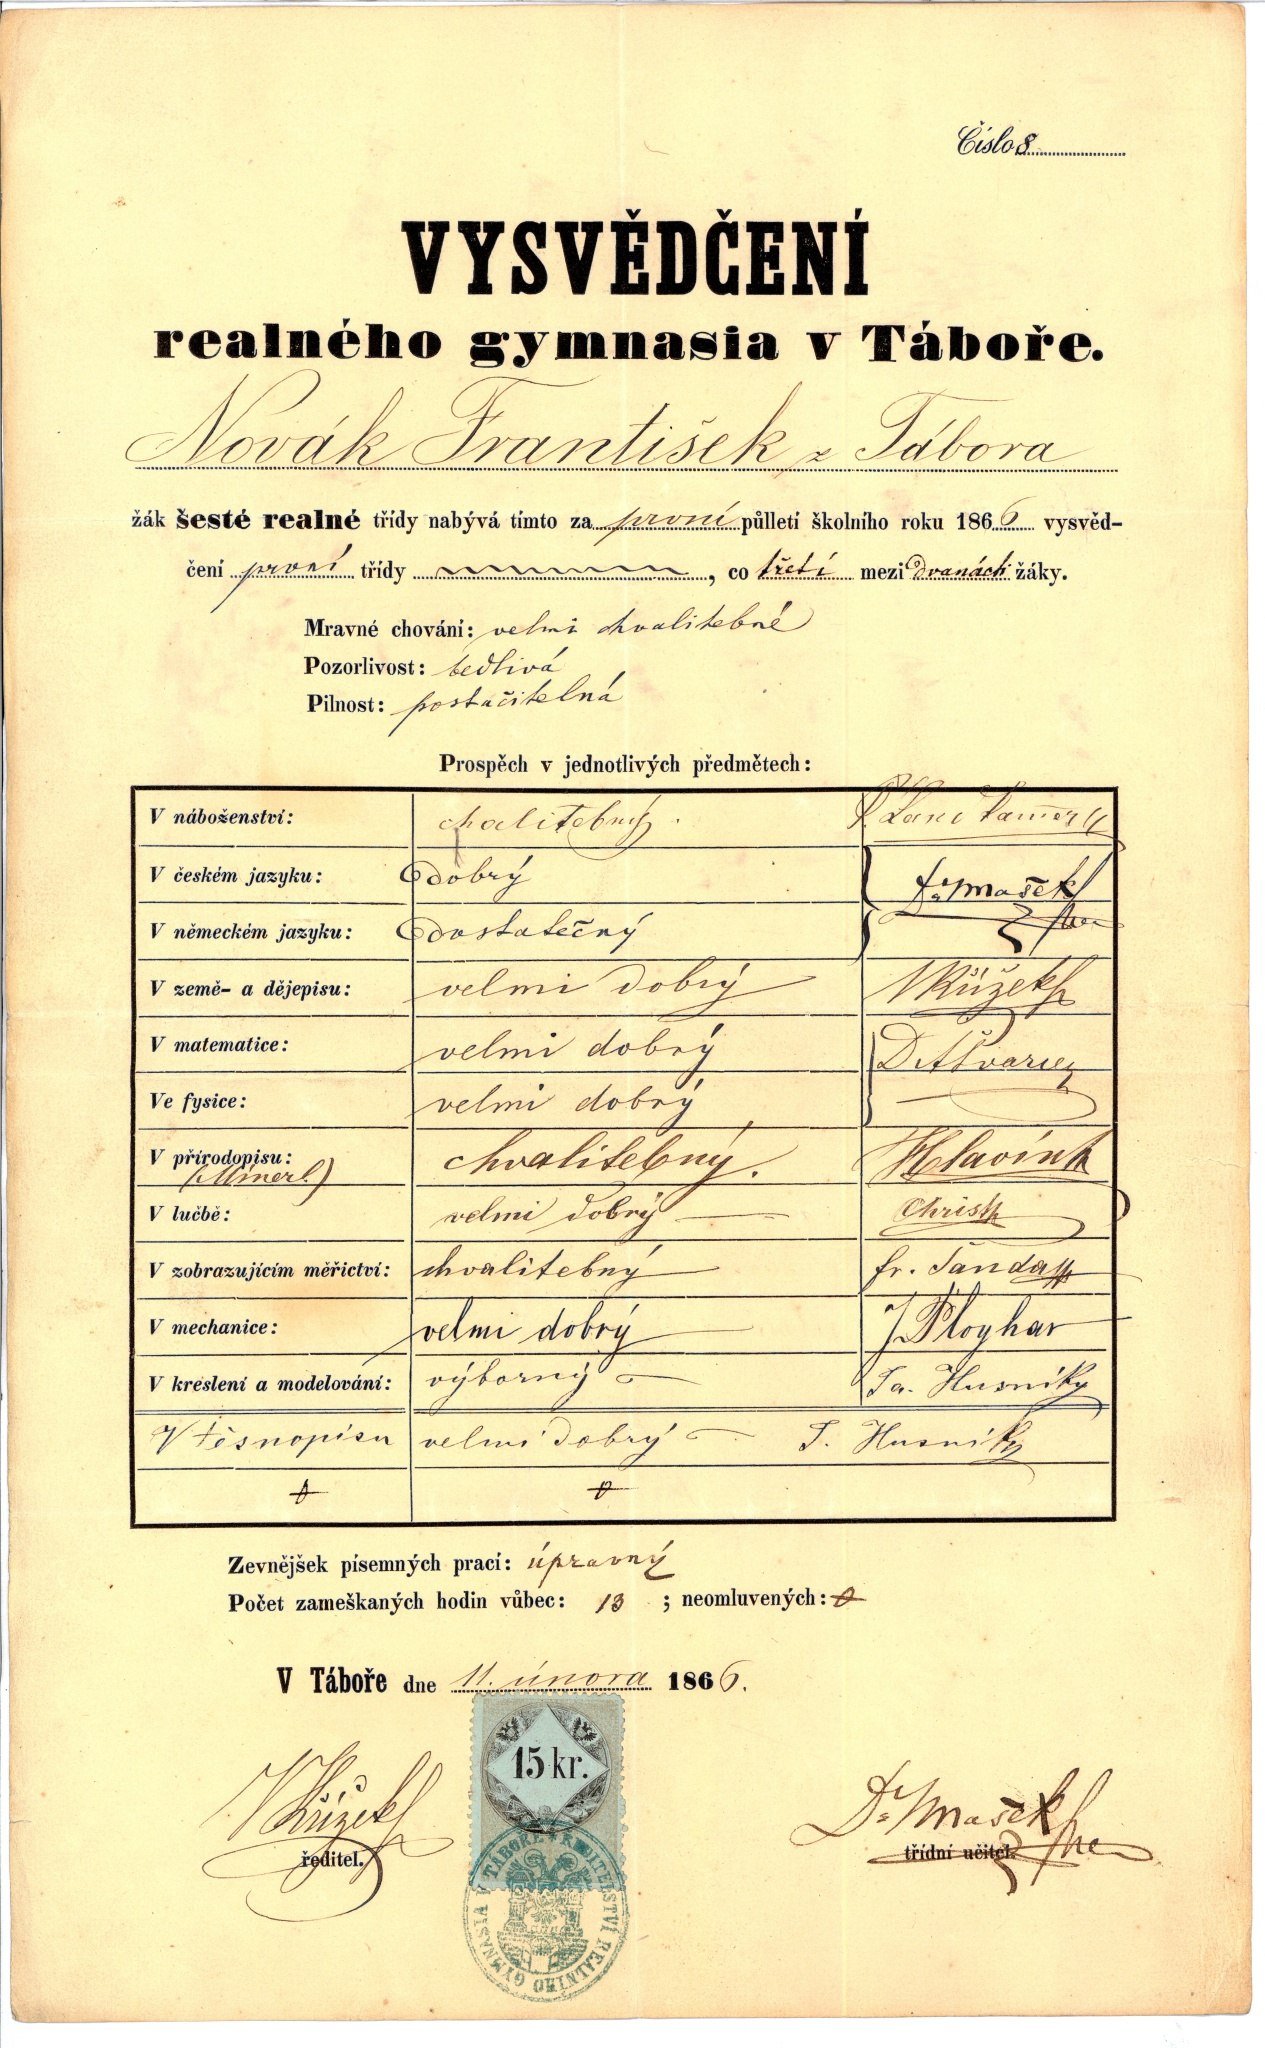 Číslo 8.
VYSVĚDČENÍ
realného gymnasia v Táboře.
Novák František z Tábora
žák šesté realné třídy nabývá tímto za první půlletí školního roku 1866 vysvěd-
čení první třídy , co třetí mezi dvanácti žáky.
Mravné chování: velmi chvalitebné
Pozorlivost: bedlivá
Pilnost: postačitelná
Prospěch v jednotlivých předmětech:
V náboženství: chvalitebný.
V českém jazyku: dobrý Dr. Mašek
V německém jazyku: dostatečný
V země- a dějepisu: velmi dobrý V Křížek
V matematice: velmi dobrý
Ve fysice: velmi dobrý
V přírodopisu: chvalitebný. Hlavínk
(Minerl.)
V lučbě: velmi dobrý Christ
V zobrazujícím měřictví: chvalitebný fr. Šanda
V mechanice: velmi dobrý J. Ployhar
V kreslení a modelování: výborný Ja. Husník
V těsnopisu velmi dobrý J. Husník
0 0
Zevnějšek písemných prací: úpravný
Počet zameškaných hodin vůbec: 13 ; neomluvených: 0
V Táboře dne 11. února 1866.
15 kr.
V Křížek
ředitel.
Dr. Mašek
třídní učitel.
ŘEDITELSTVÍ REALNÍHO GYMNASIA V TÁBOŘE